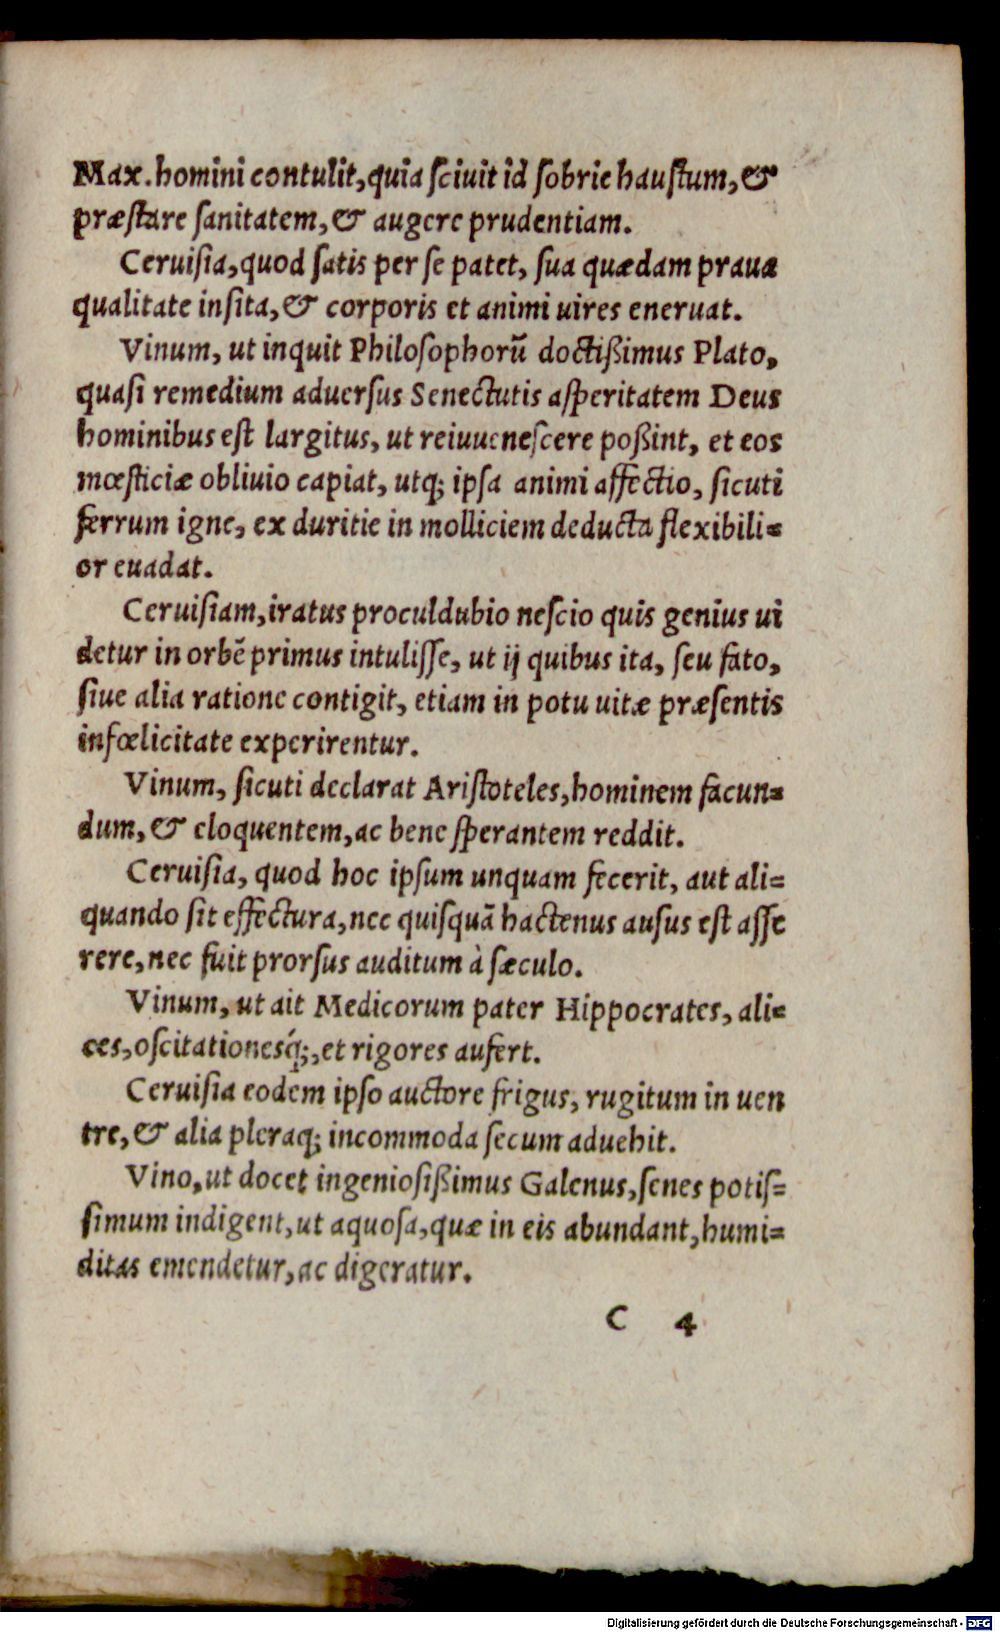 Max. homini contulit, quia ſciuit id ſobrie hauſtum, &
præſtare ſanitatem, & augere prudentiam.
Ceruiſia, quod ſatis per ſe patet, ſua quædam praua
qualitate inſita, & corporis et animi uires eneruat.
Vinum, ut inquit Philoſophorũ doctißimus Plato,
quaſi remedium aduerſus Senectutis aſperitatem Deus
hominibus eſt largitus, ut reiuueneſcere poßint, et eos
mœſticiæ obliuio capiat, utq; ipſa animi affectio, ſicuti
ferrum igne, ex duritie in molliciem deducta flexibili=
or euadat.
Ceruiſiam, iratus proculdubio neſcio quis genius ui
detur in orbẽ primus intuliſſe, ut ij quibus ita, ſeu fato,
ſiue alia ratione contigit, etiam in potu uitæ præſentis
infœlicitate experirentur.
Vinum, ſicuti declarat Ariſtoteles, hominem facun=
dum, & eloquentem, ac bene ſperantem reddit.
Ceruiſia, quod hoc ipſum unquam fecerit, aut ali=
quando ſit effectura, nec quiſquã hactenus auſus eſt aſſe
rere, nec fuit prorſus auditum à ſæculo.
Vinum, ut ait Medicorum pater Hippocrates, ali=
ces, oſcitationesq́;, et rigores aufert.
Ceruiſia eodem ipſo auctore frigus, rugitum in uen
tre, & alia pleraq; incommoda ſecum aduehit.
Vino, ut docet ingenioſißimus Galenus, ſenes potiſ=
ſimum indigent, ut aquoſa, quæ in eis abundant, humi=
ditas emendetur, ac digeratur.
C 4
Digitalisierung gefördert durch die Deutsche Forschungsgemeinschaft - DFG